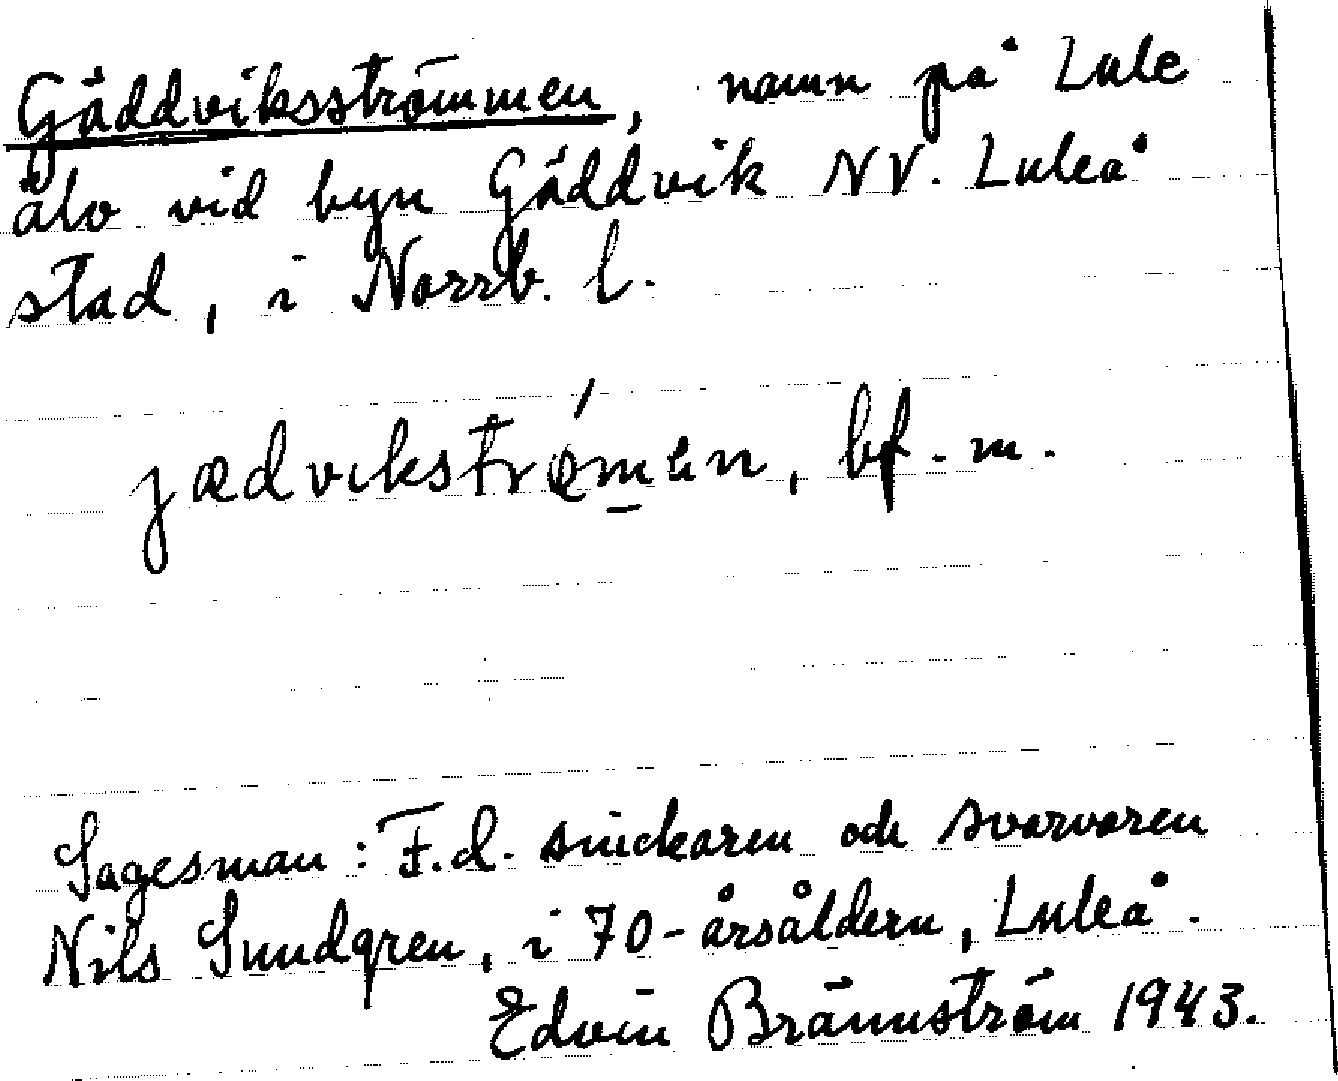 Gäddviksströmmen, namn på Lule
älv vid byn Gäddvik NV. Luleå
stad, i Norrb. l.
jædvikstrǿm̲en, bf. m.
Sagesman: F.d. snickaren och svarvaren
Nils Sundgren, i 70-årsåldern, Luleå.
Edvin Brännström 1943.